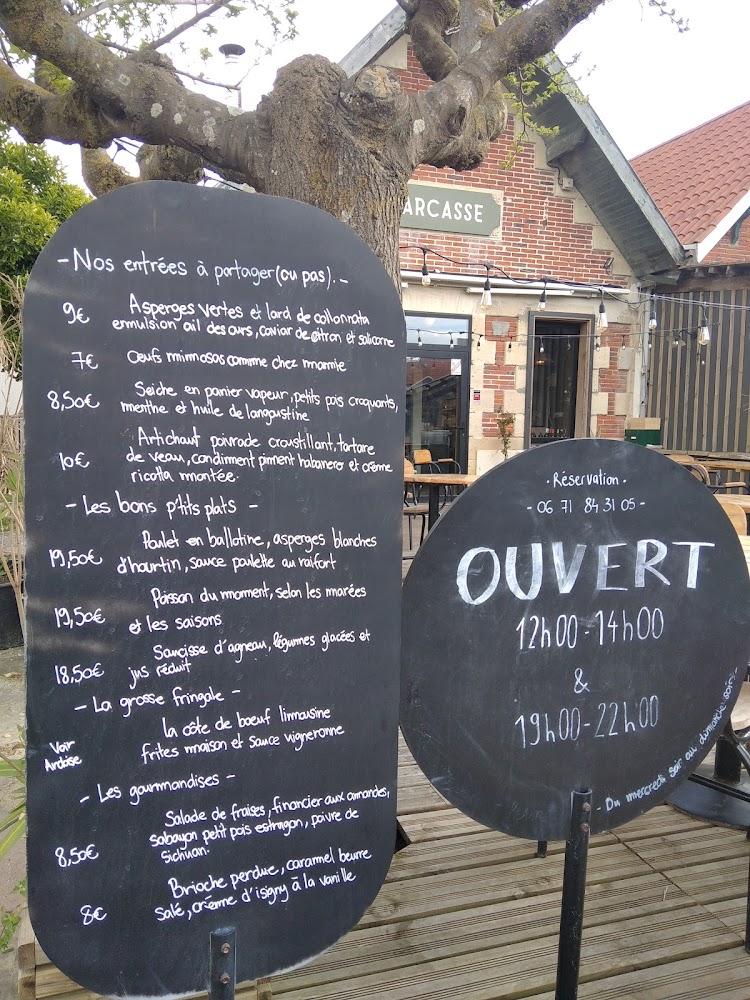 ARCASSE
- Nos entrées à partager (ou pas). -
9€ Asperges vertes et lard de collonnata
emmulsion ail des ours, caviar de citron et salicorne
7€ Oeufs mimosas comme chez mamie
8,50€ Seiche en panier vapeur, petits pois craquants,
menthe et huile de langoustine
10€ Artichaut poivrade croustillant, tartare
de veau, condiment piment habanero et crème
ricotta montée.
- Les bons p'tits plats -
19,50€ Poulet en ballotine, asperges blanches
d'hourtin, sauce poulette au raifort
19,50€ Poisson du moment, selon les marées
et les saisons
18,50€ Saucisse d'agneau, légumes glacées et
jus réduit
- La grosse fringale -
Voir
Ardoise
la côte de boeuf limousine
frites maison et sauce vigneronne
- Les gourmandises -
8,50€ Salade de fraises, financier aux amandes,
sabayon petit pois estragon, poivre de
Sichuan.
8€ Brioche perdue, caramel beurre
salé, crème d'isigny à la vanille
· Réservation ·
- 06 71 84 31 05 -
OUVERT
12h00-14h00
&
19h00-22h00
- Du mercredi soir au dimanche soir -